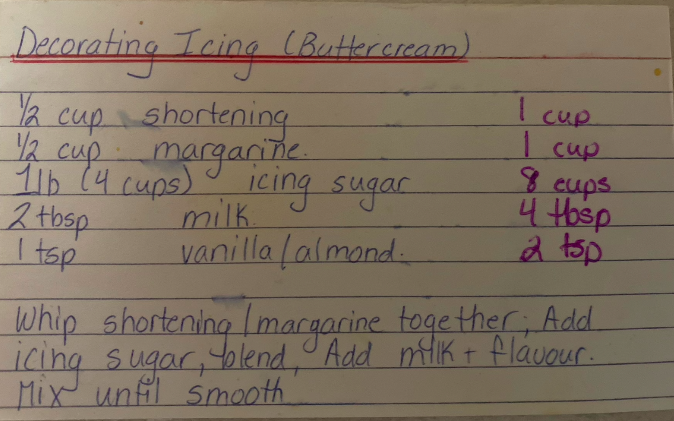 Decorating Icing (Buttercream)
1/2 cup shortening 1 cup
1/2 cup margarine. 1 cup
1lb (4 cups) icing sugar 8 cups
2 tbsp milk 4 tbsp
1 tsp vanilla/almond. 2 tsp
Whip shortening/margarine together; Add
icing sugar, blend, Add milk + flavour.
Mix until smooth